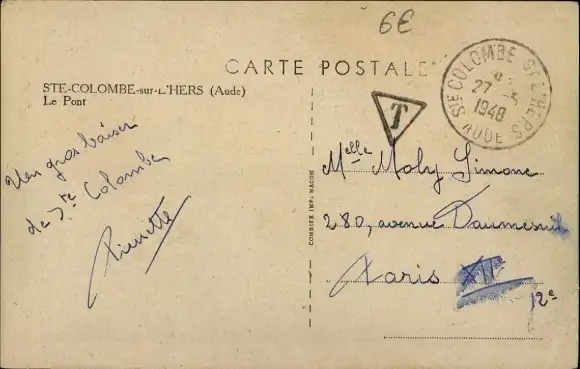 6€
CARTE POSTALE
STE-COLOMBE-sur-L'HERS (Aude)
Le Pont
STE COLOMBE S/ L'HERS
27 -
1948
AUDE
T
Un gros baiser
de Ste Colombe
Pierrette
COMBIER IMP. MACON
Melle Moly Simone
280, avenue Daumesnil
Paris XII
12e